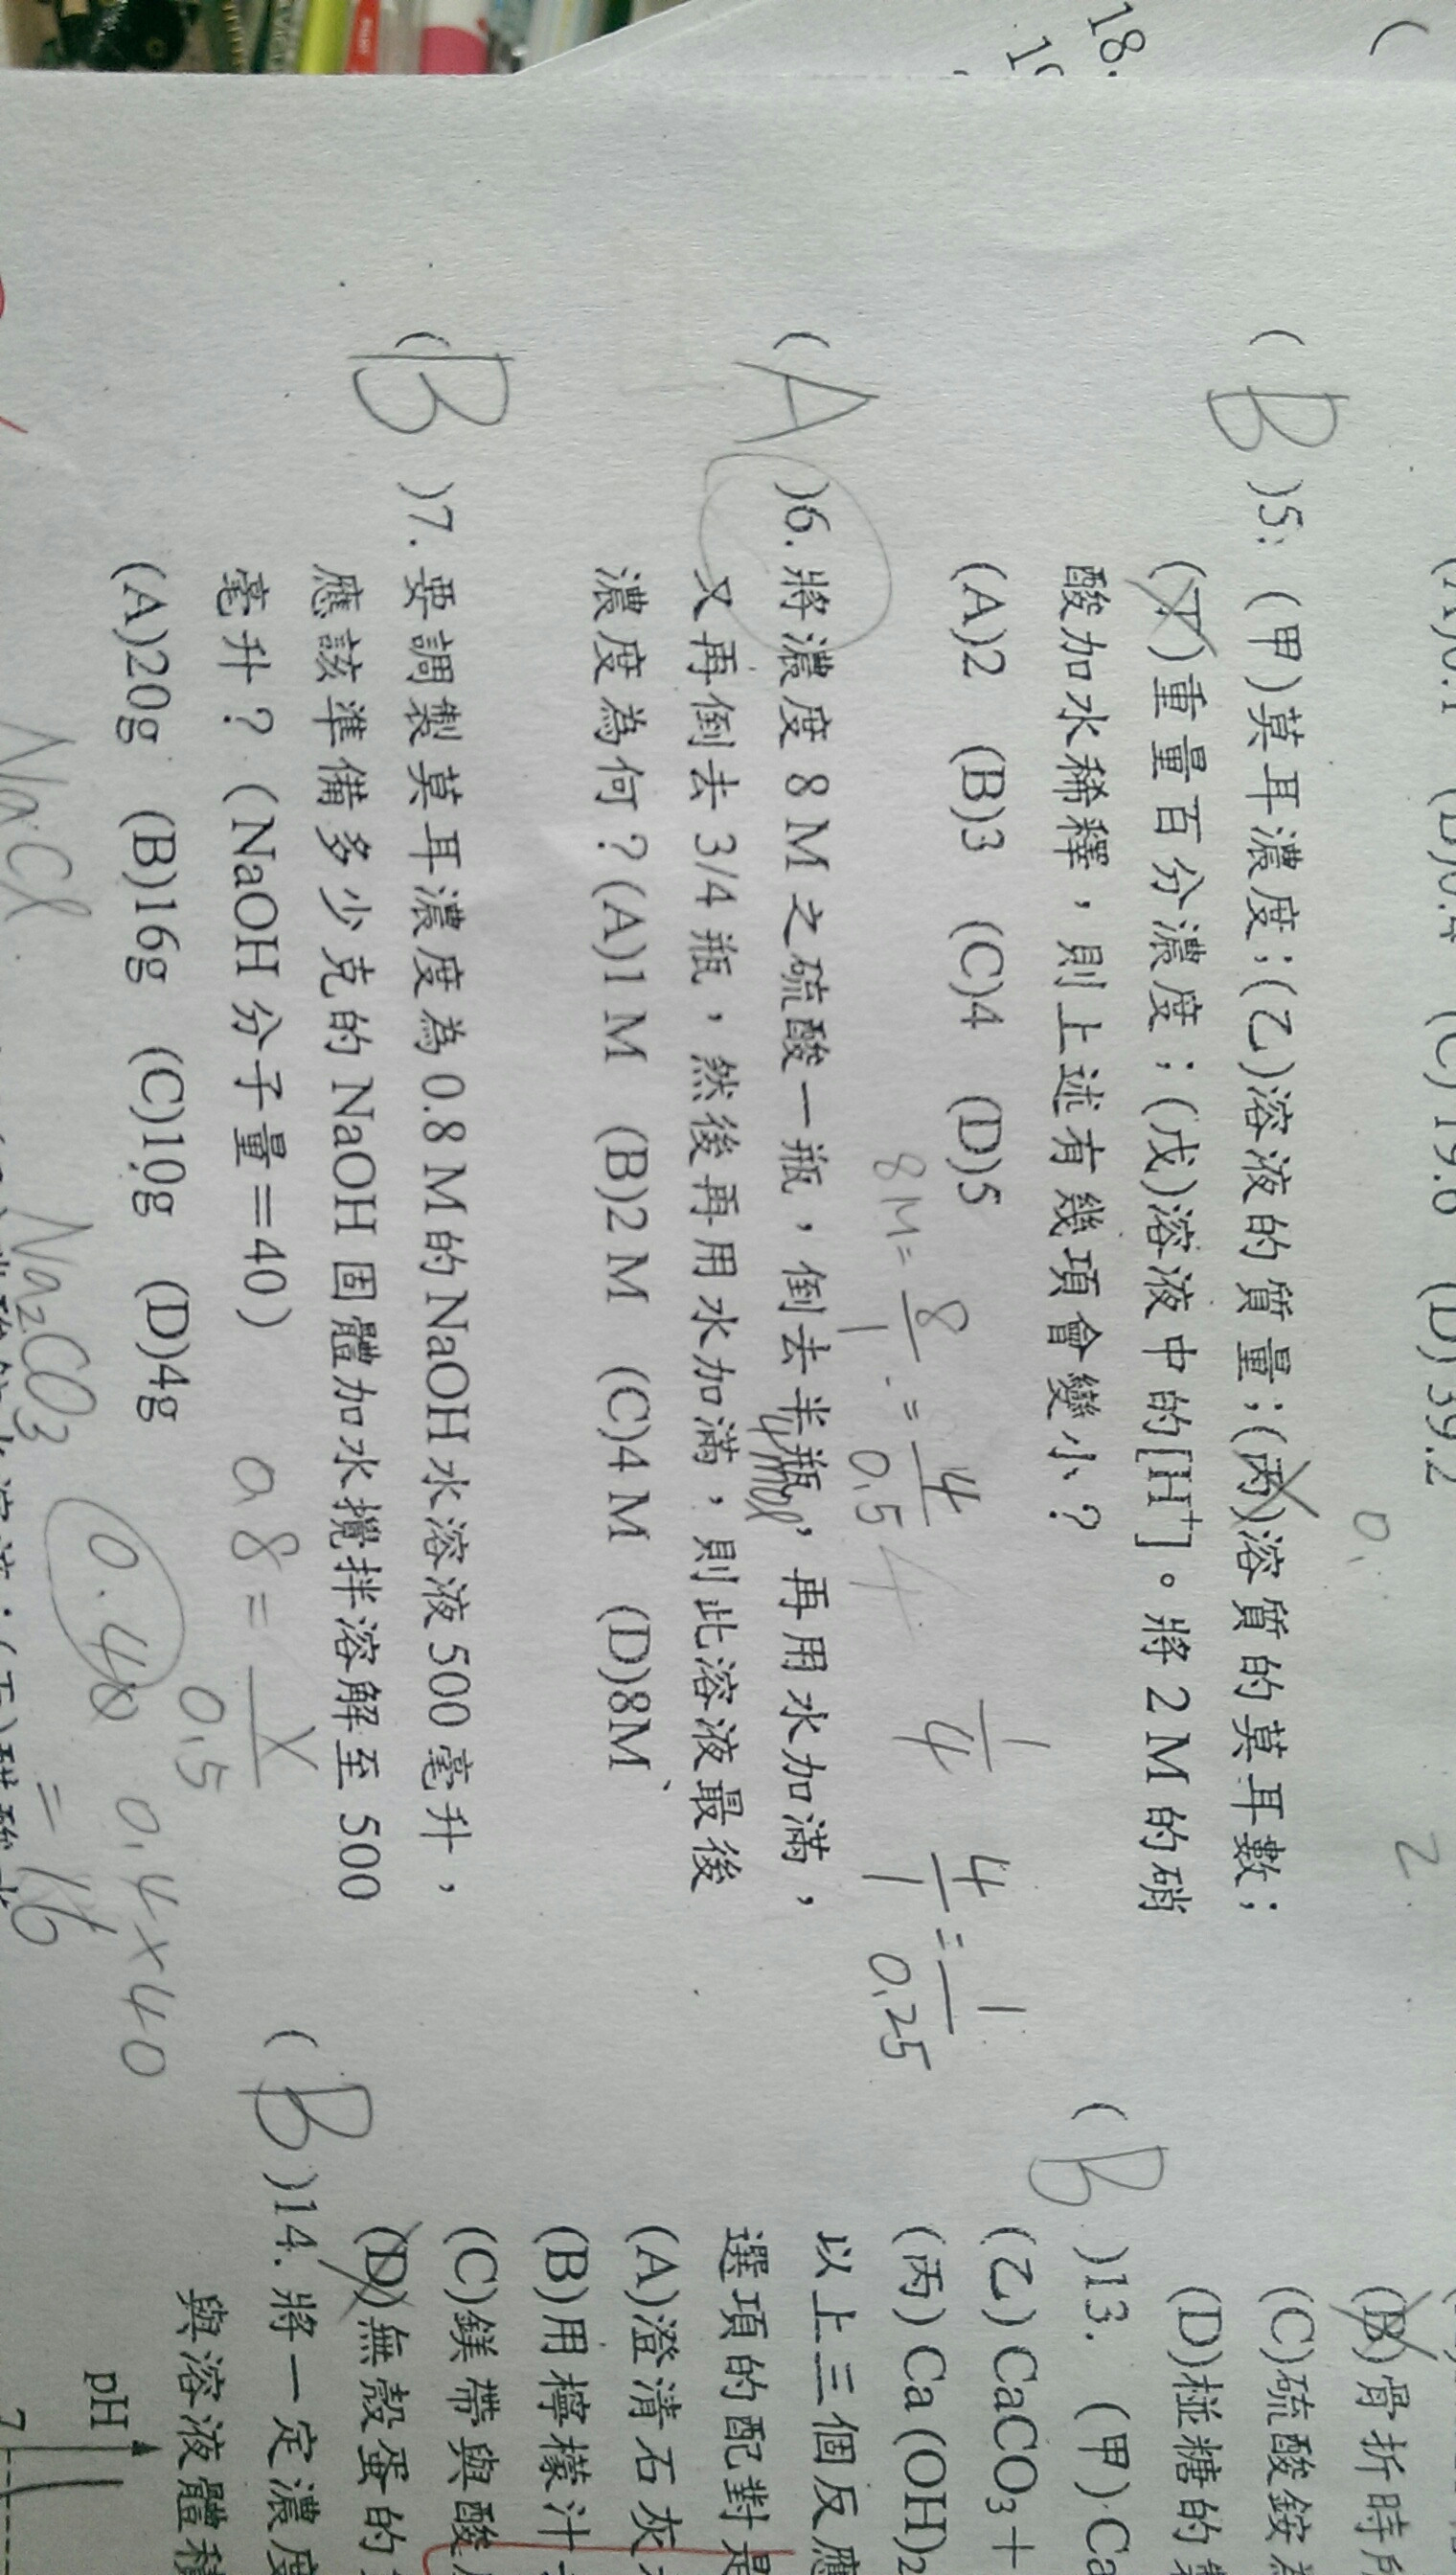 18.
(B)5. (甲)莫耳濃度；(乙)溶液的質量；(丙)溶質的莫耳數；
(丁)重量百分濃度；(戊)溶液中的[H⁺]。將 2 M 的硝
酸加水稀釋，則上述有幾項會變小？
(A)2 (B)3 (C)4 (D)5
8M = 8/1 = 4/0.5
1/4
4/1 = 1/0.25
(A)6. 將濃度 8 M 之硫酸一瓶，倒去半瓶，再用水加滿，
4mol
又再倒去 3/4 瓶，然後再用水加滿，則此溶液最後
濃度為何？(A)1 M (B)2 M (C)4 M (D)8M
(B)7. 要調製莫耳濃度為 0.8 M 的 NaOH 水溶液 500 毫升，
應該準備多少克的 NaOH 固體加水攪拌溶解至 500
毫升？(NaOH 分子量＝40)
(A)20g (B)16g (C)10g (D)4g
0.8 = X/0.5
0.4×40
= 16
NaCl
Na₂CO₃
(B)骨折時
(C)硫酸銨
(D)椪糖的
(B)13. (甲) Ca
(乙) CaCO₃＋
(丙) Ca (OH)₂
以上三個反應
選項的配對是
(A)澄清石灰
(B)用檸檬汁
(C)鎂帶與酸
(D)無殼蛋的
(B)14. 將一定濃度
與溶液體積
pH
7